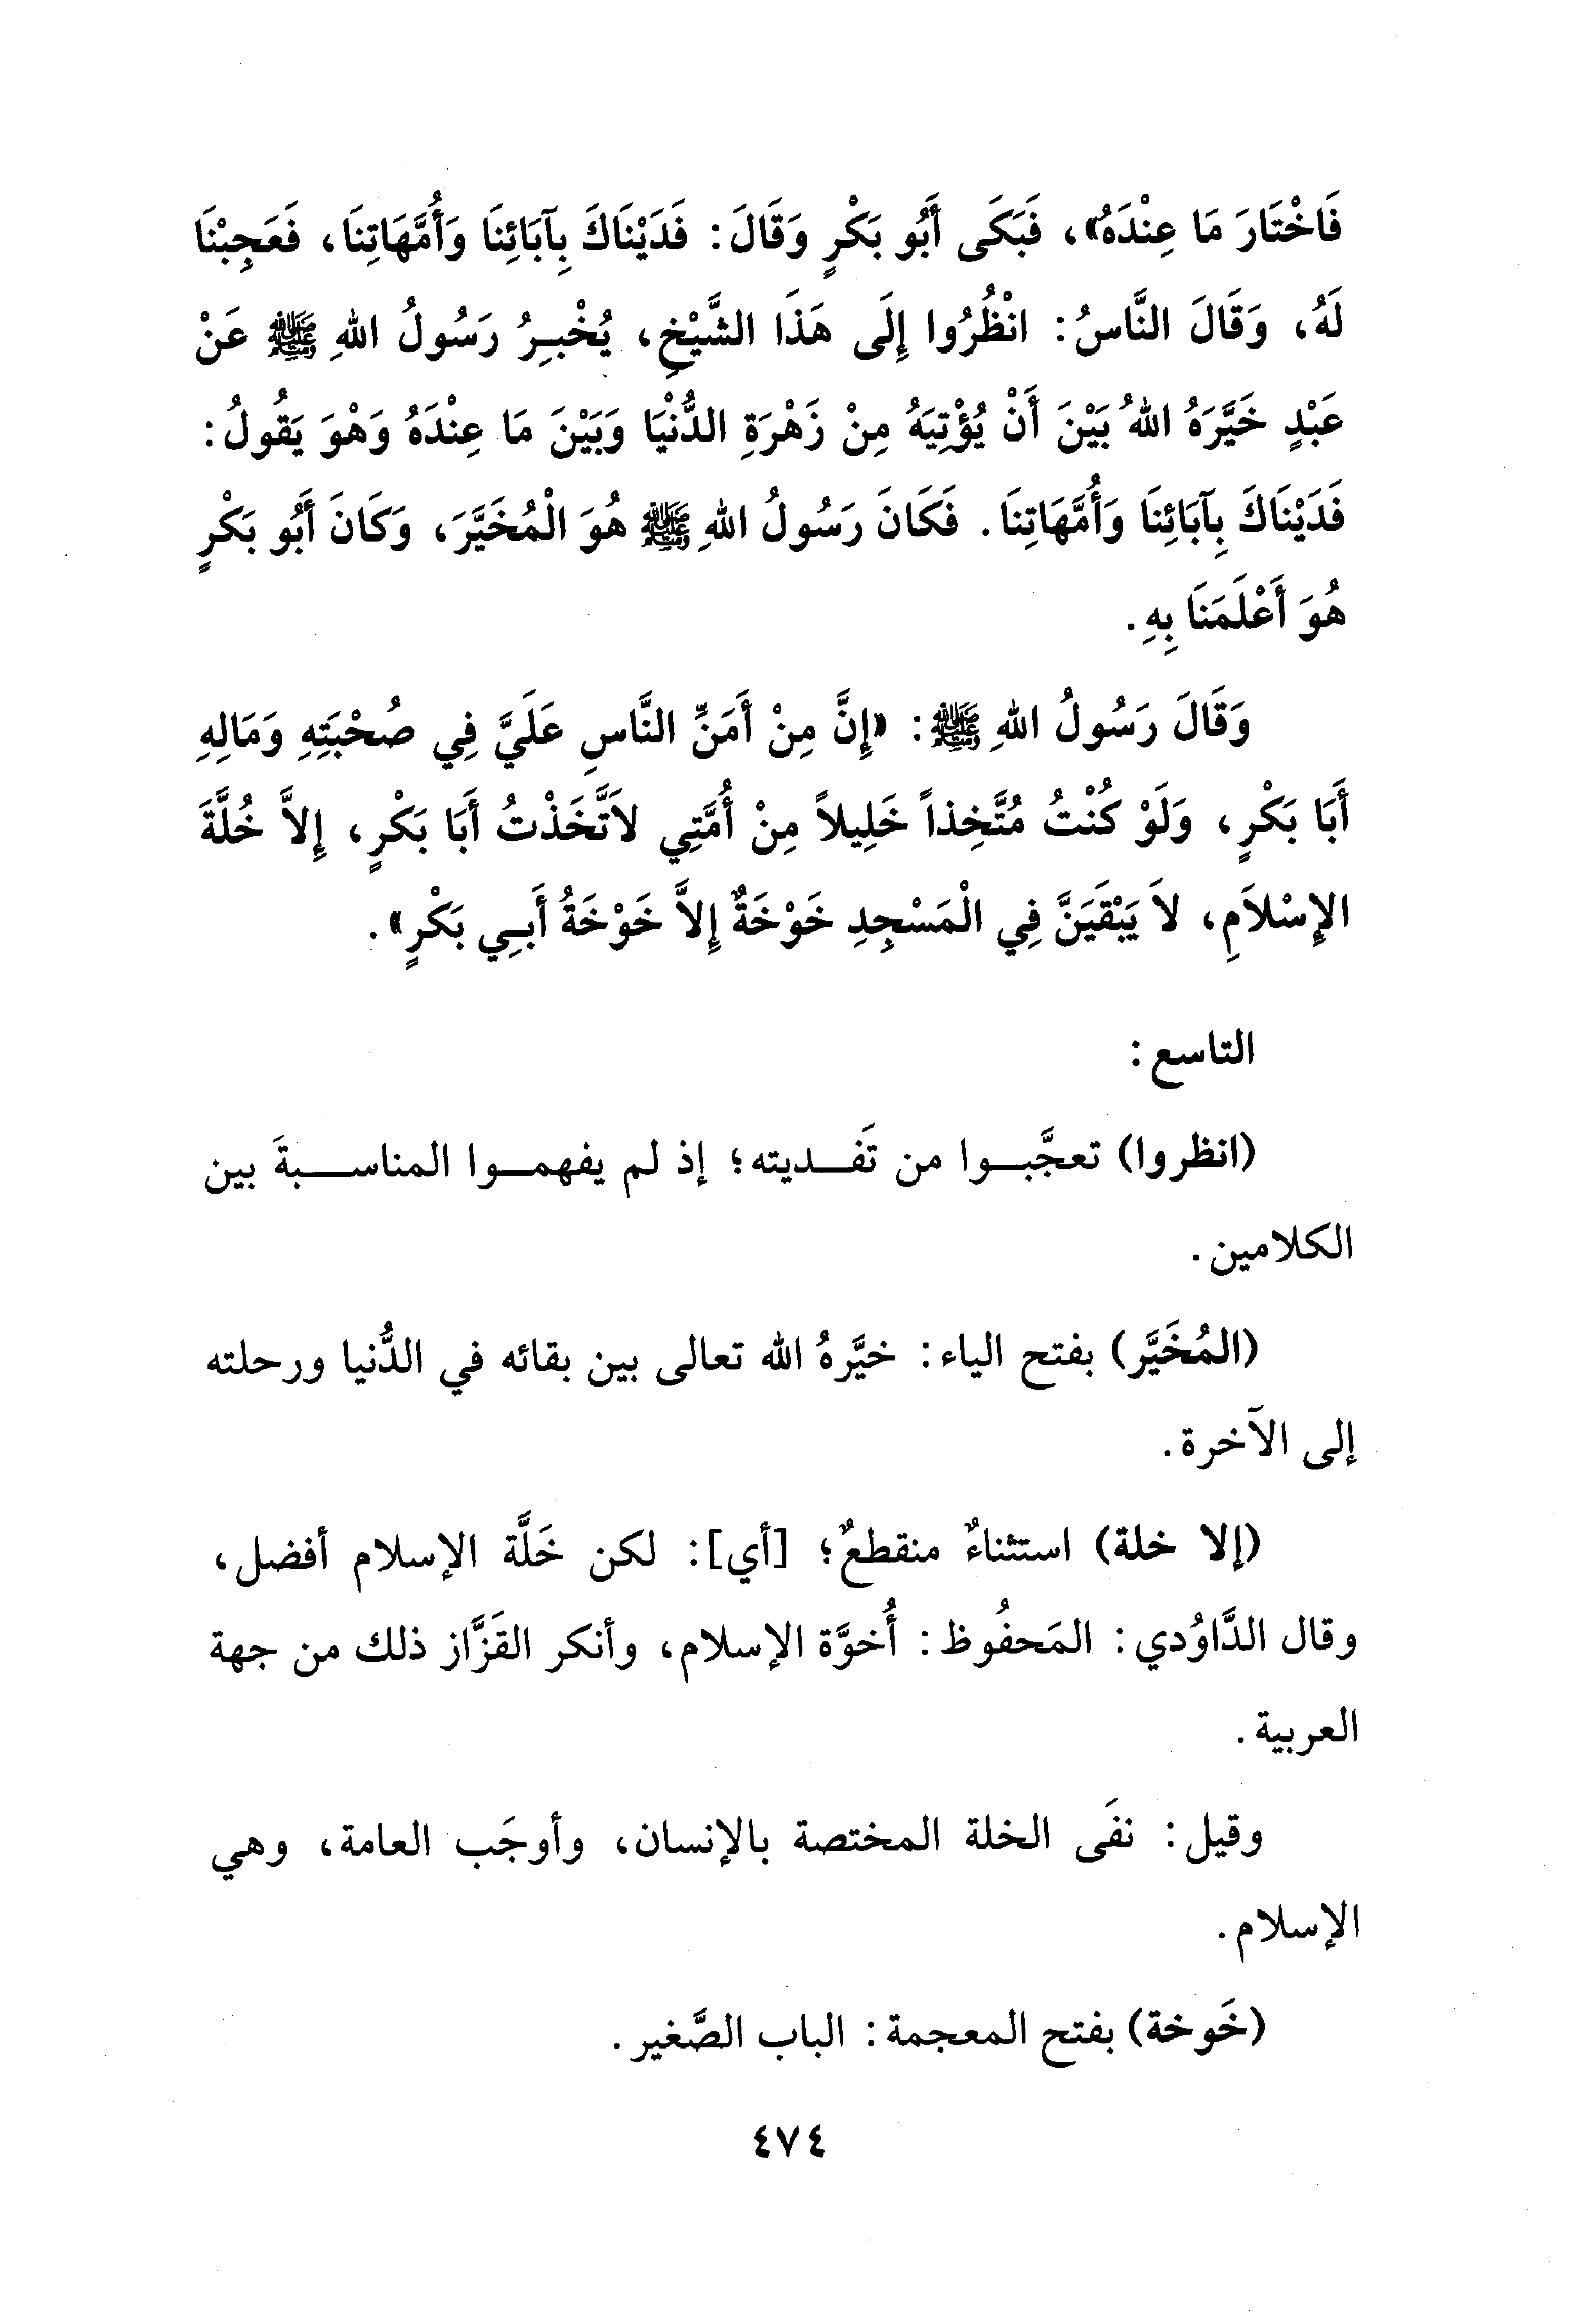 فَاخْتَارَ مَا عِنْدَهُ»، فَبَكَى أَبُو بَكْرٍ وَقَالَ: فَدَيْنَاكَ بِآبَائِنَا وَأُمَّهَاتِنَا، فَعَجِبْنَا
لَهُ، وَقَالَ النَّاسُ: انْظُرُوا إِلَى هَذَا الشَّيْخِ، يُخْبِرُ رَسُولُ اللهِ ﷺ عَنْ
عَبْدٍ خَيَّرَهُ اللهُ بَيْنَ أَنْ يُؤْتِيَهُ مِنْ زَهْرَةِ الدُّنْيَا وَبَيْنَ مَا عِنْدَهُ وَهْوَ يَقُولُ:
فَدَيْنَاكَ بِآبَائِنَا وَأُمَّهَاتِنَا. فَكَانَ رَسُولُ اللهِ ﷺ هُوَ الْمُخَيَّرَ، وَكَانَ أَبُو بَكْرٍ
هُوَ أَعْلَمَنَا بِهِ.
وَقَالَ رَسُولُ اللهِ ﷺ: «إِنَّ مِنْ أَمَنِّ النَّاسِ عَلَيَّ فِي صُحْبَتِهِ وَمَالِهِ
أَبَا بَكْرٍ، وَلَوْ كُنْتُ مُتَّخِذاً خَلِيلاً مِنْ أُمَّتِي لاَتَّخَذْتُ أَبَا بَكْرٍ، إِلاَّ خُلَّةَ
الإِسْلاَمِ، لاَ يَبْقَيَنَّ فِي الْمَسْجِدِ خَوْخَةٌ إِلاَّ خَوْخَةُ أَبِي بَكْرٍ».
التاسع:
(انظروا) تعجَّبوا من تَفديته؛ إذ لم يفهموا المناسبةَ بين
الكلامين.
(المُخَيَّر) بفتح الياء: خيَّرهُ الله تعالى بين بقائه في الدُّنيا ورحلته
إلى الآخرة.
(إلا خلة) استثناءٌ منقطعٌ؛ [أي]: لكن خَلَّة الإسلام أفضل،
وقال الدَّاوُدي: المَحفُوظ: أُخوَّة الإسلام، وأنكر القَزَّاز ذلك من جهة
العربية.
وقيل: نفَى الخلة المختصة بالإنسان، وأوجَب العامة، وهي
الإسلام.
(خَوخة) بفتح المعجمة: الباب الصَّغير.
٤٧٤